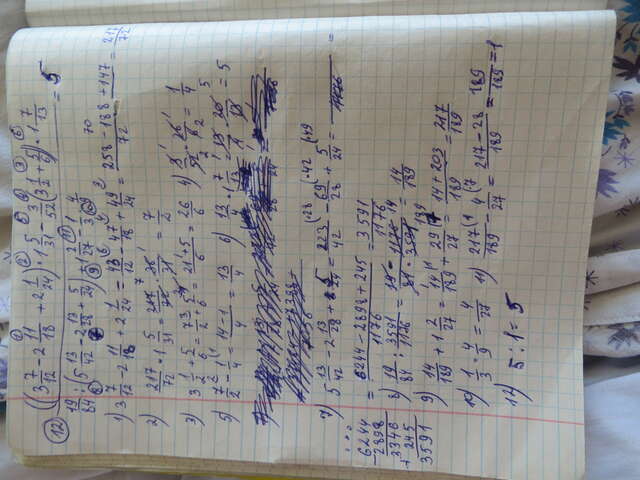 12 ((3 7/12 - 2 11/18 + 2 1/24) · 1 5/31 - 3/52 (3 1/2 + 5/6)) · 1 7/13
19/84 : (5 13/42 - 2 13/28 + 5/24) + 1 2/27 - 1/3 · 4/9 = 5
1) 3 7/12 - 2 11/18 + 2 1/24 = 43/12 - 47/18 + 49/24 = 258 - 188 + 147/72 = 217/72
2) 217/72 · 1 5/31 = 217/72 · 36/31 = 7/2
3) 3 1/2 + 5/6 = 7/2 + 5/6 = 21+5/6 = 26/6 4) 3/52 · 26/6 = 1/4
5) 7/2 - 1/4 = 14-1/4 = 13/4 6) 13/4 · 1 7/13 = 13/4 · 20/13 = 5
7) 5 13/42 - 2 13/28 + 5/24 = 223/42 - 69/28 + 5/24 =
= 6244 - 2898 + 245/1176 = 3591/1176
6244
- 2898
3346
+ 245
3591
8) 19/84 : 3591/1176 = 19 · 1176/84 · 3591 = 14/189
9) 14/189 + 1 2/27 = 14/189 + 29/27 = 14+203/189 = 217/189
10) 1/3 · 4/9 = 4/27 11) 217/189 - 4/27 = 217-28/189 = 189/189 = 1
12) 5 : 1 = 5